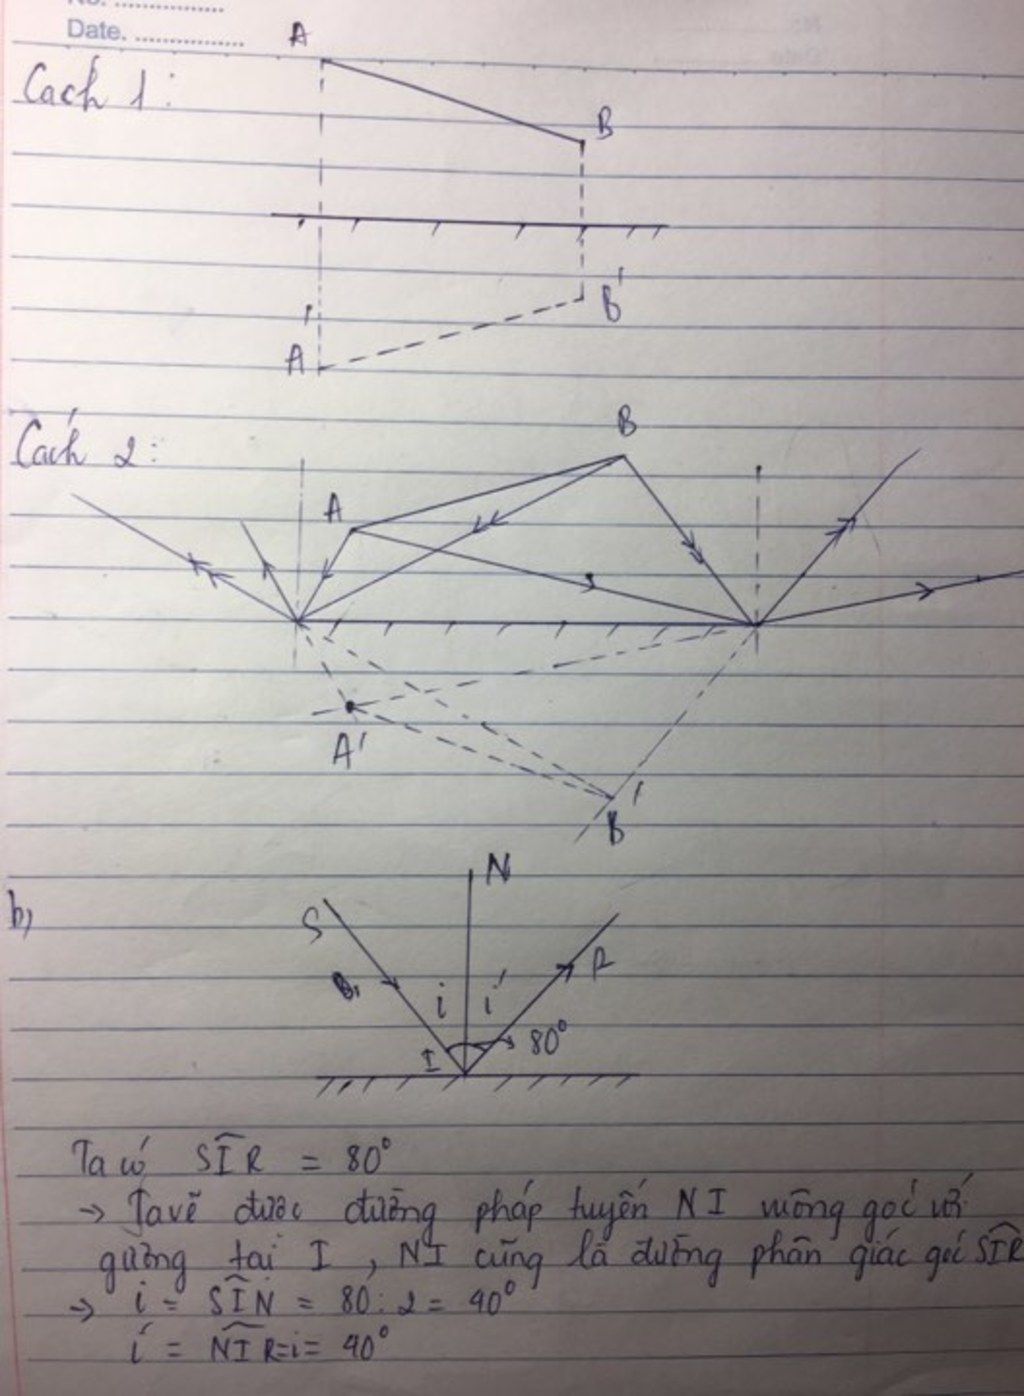 No. ..............
Date. ..............
A
Cách 1:
B
B'
A'
Cách 2:
B
A
A'
B'
b,
N
S
R
i
i'
I
80°
Ta có SÎR = 80°
→ Ta vẽ được đường pháp tuyến NI vuông góc với
gường tại I, NI cũng là đường phân giác góc SÎR
→ i = SÎN = 80:2 = 40°
i' = NÎR=i= 40°